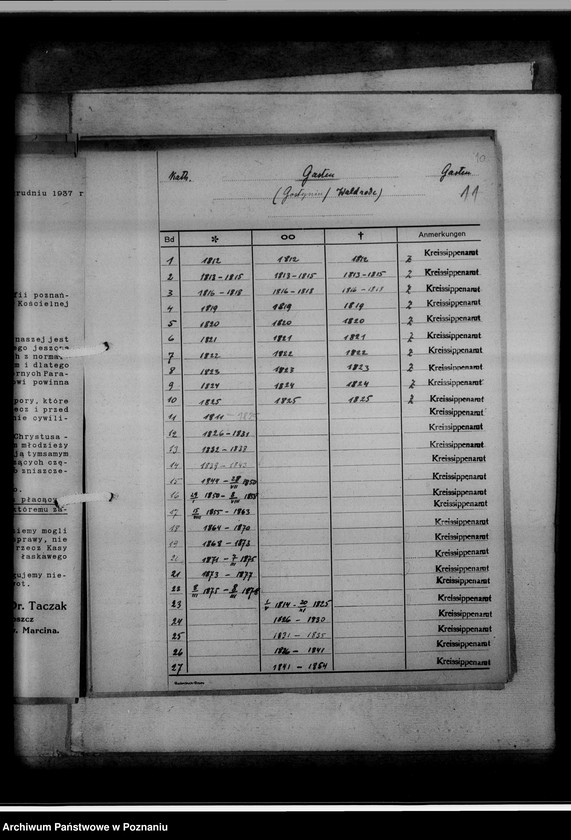 rudniu 1937 r
fii poznań-
Kościelnej
naszej jest
ego jeszcze
h z norma
m i dlatego
rnych Para-
wi powinna
pory, które
ecz i przed
nie cywili-
Chrystusa -
m młodzieży
ją tymsamym
zących czę-
o zniszcze-
o.
a płacący
któremu za-
iemy mogli
sprawy, nie
rzecz Kasy
łaskawego
gujemy nie-
vot.
Dr. Taczak
eszcz
v. Marcina.
10
Kath. Gasten Gasten
(Gostynin / Waldrode) 11
Bd * ∞ † Anmerkungen
1 1812 1812 1812 2 Kreissippenamt
2 1813-1815 1813-1815 1813-1815 2 Kreissippenamt
3 1816-1818 1816-1818 1816-1818 2 Kreissippenamt
4 1819 1819 1819 2 Kreissippenamt
5 1820 1820 1820 2 Kreissippenamt
6 1821 1821 1821 2 Kreissippenamt
7 1822 1822 1822 2 Kreissippenamt
8 1823 1823 1823 2 Kreissippenamt
9 1824 1824 1824 2 Kreissippenamt
10 1825 1825 1825 2 Kreissippenamt
11 1811 - 1825 Kreissippenamt
12 1826-1831 Kreissippenamt
13 1832-1838 Kreissippenamt
14 1839-1843 Kreissippenamt
15 1844 - 28/VII 1850 Kreissippenamt
16 1850 - 1855 Kreissippenamt
17 1855 - 1863 Kreissippenamt
18 1864 - 1870 Kreissippenamt
19 1868 - 1873 Kreissippenamt
20 1871 - 1875 Kreissippenamt
21 1873 - 1877 Kreissippenamt
22 1875 - Kreissippenamt
23 1814 - 1825 Kreissippenamt
24 1826 - 1830 Kreissippenamt
25 1831 - 1835 Kreissippenamt
26 1836 - 1841 Kreissippenamt
27 1841 - 1864 Kreissippenamt
Archiwum Państwowe w Poznaniu